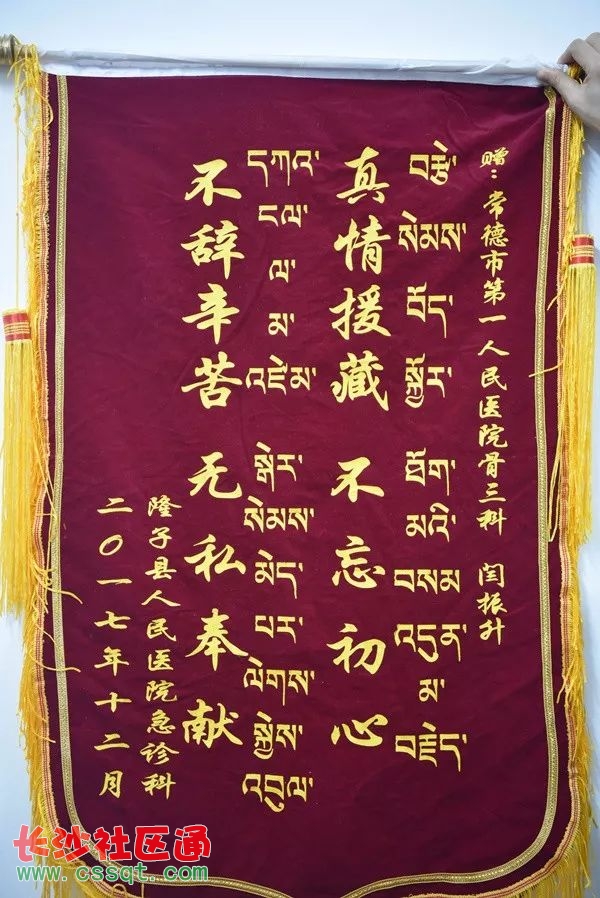 赠：常德市第一人民医院骨三科 闫振升
བརྩེ་སེམས་བོད་སྐྱོར་ཐོག་མའི་བསམ་འདུན་མ་བརྗེད་
真情援藏 不忘初心
དཀའ་ངལ་ལ་མ་འཛེམ་སྒེར་སེམས་མེད་པར་ལེགས་སྐྱེས་འབུལ་
不辞辛苦 无私奉献
隆子县人民医院急诊科
二〇一七年十二月
长沙社区通
www.cssqt.com